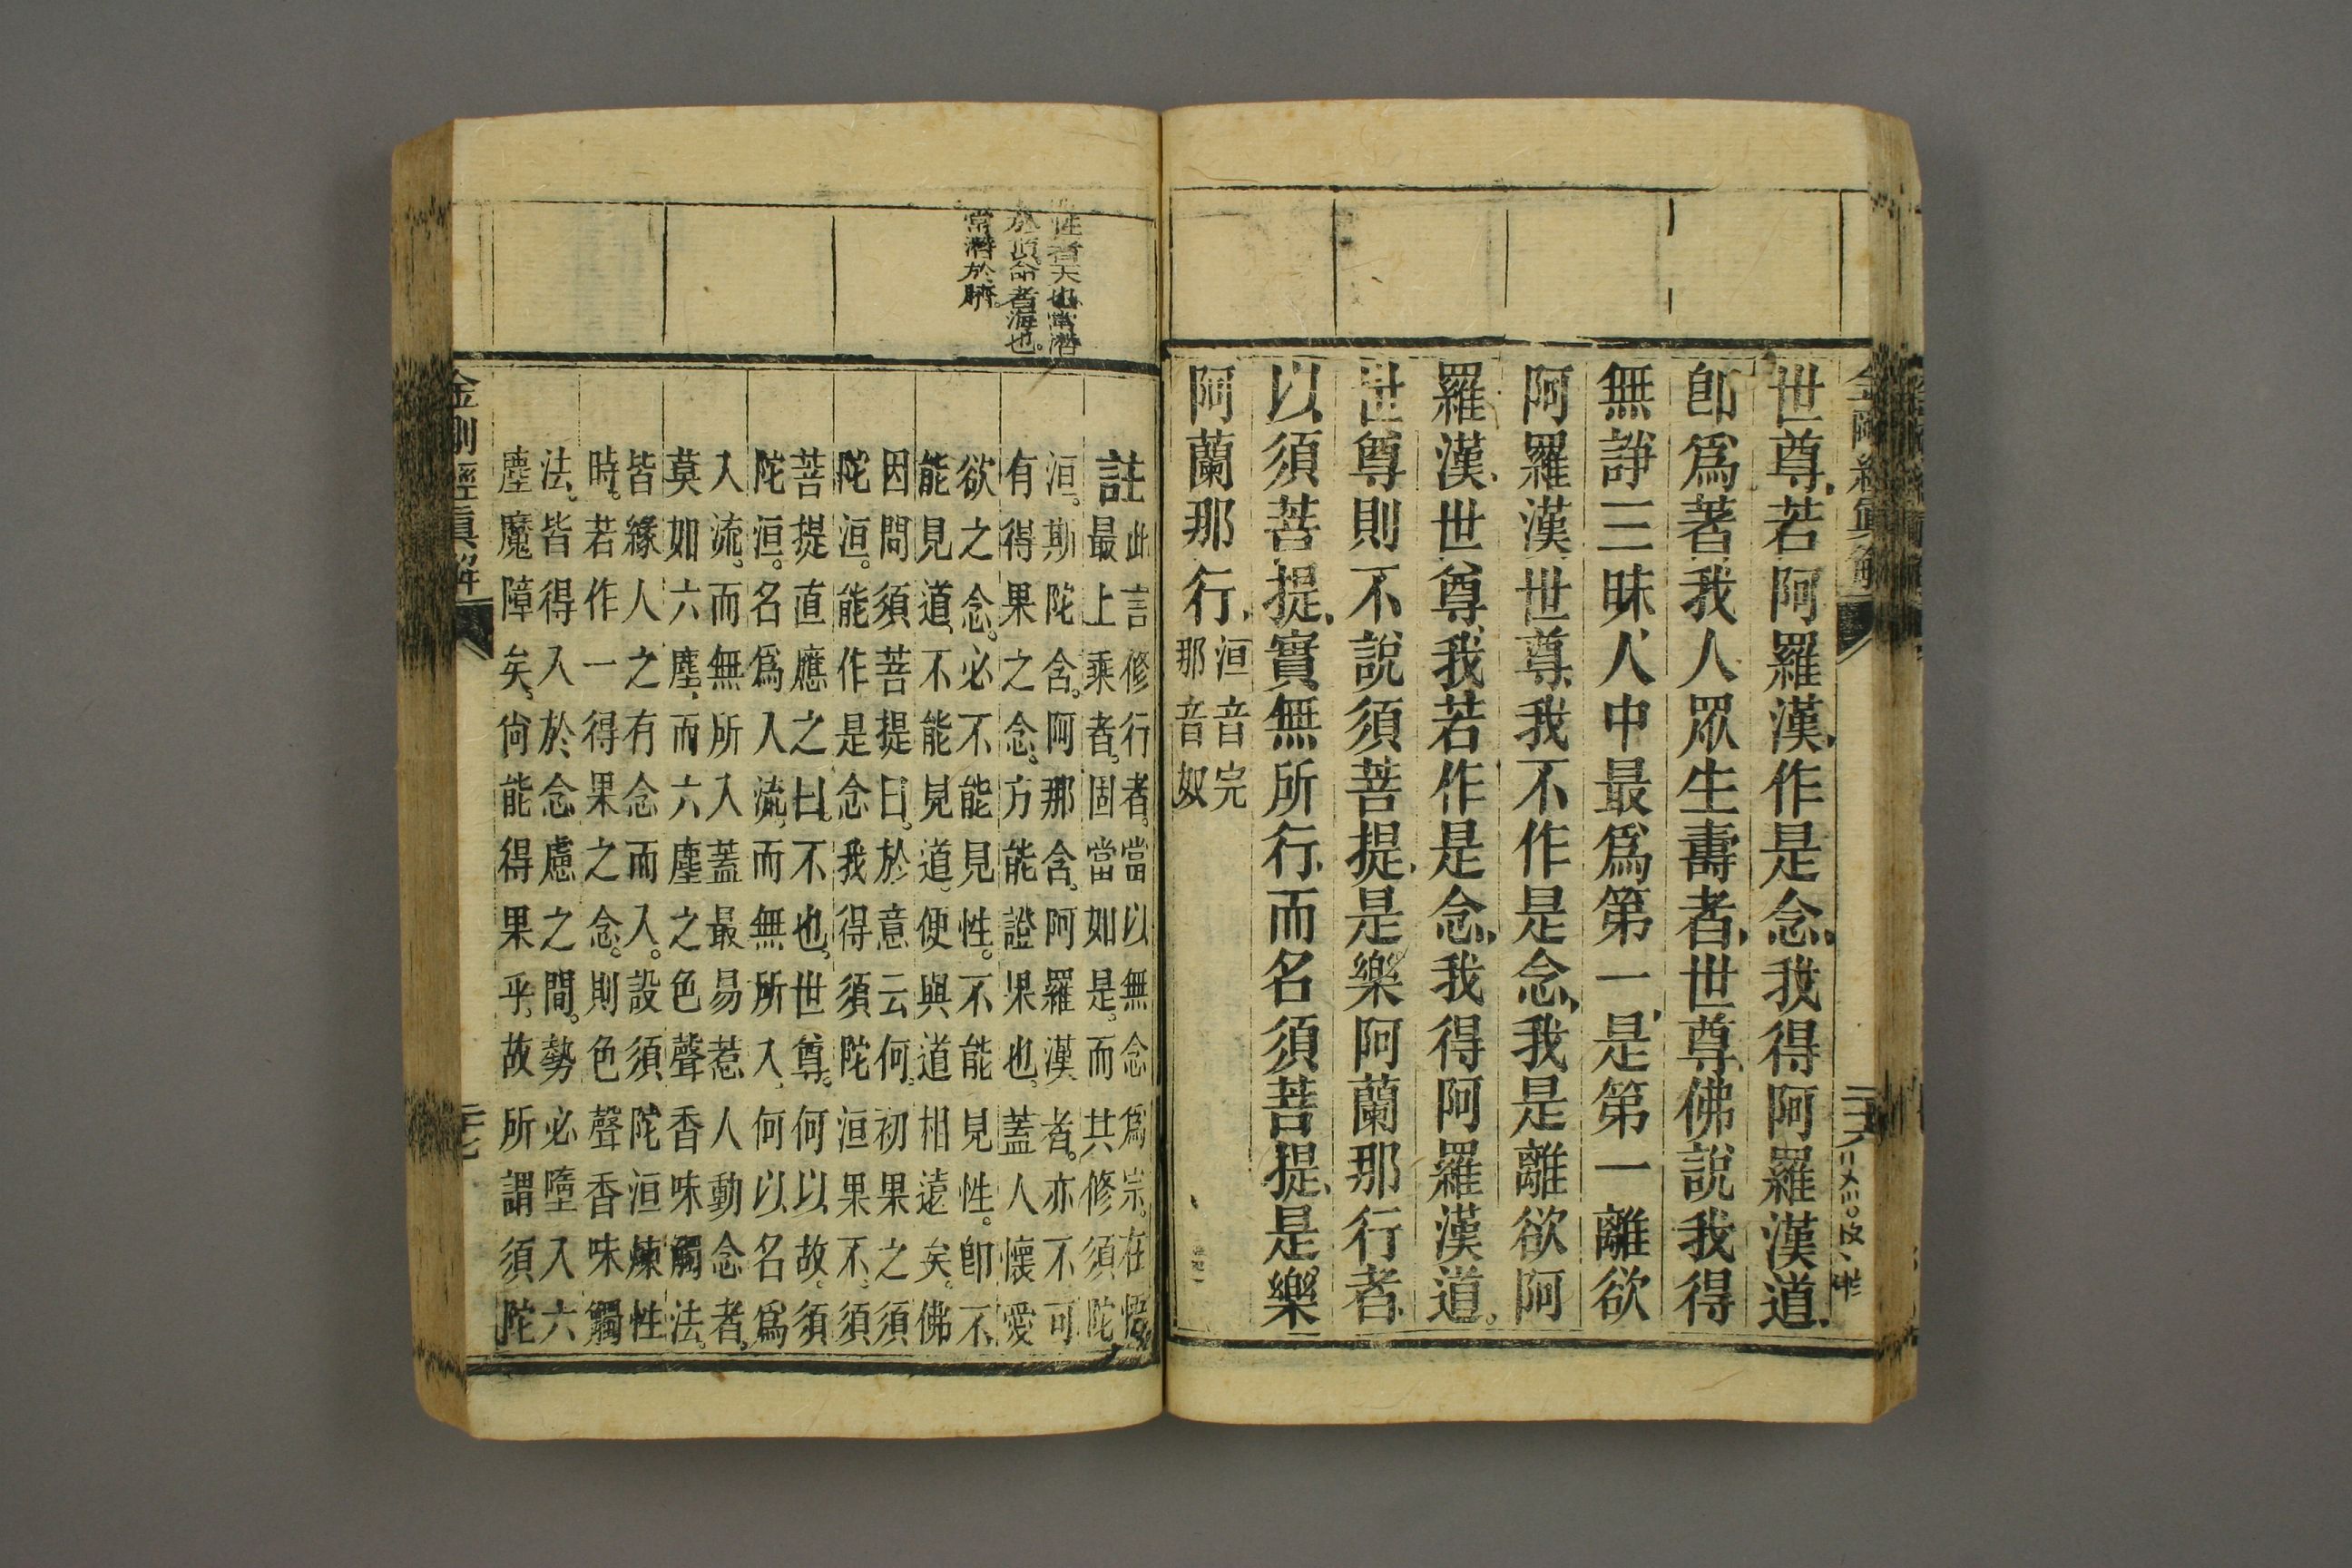 世尊若阿羅漢作是念我得阿羅漢道
卽爲著我人眾生壽者世尊佛說我得
無諍三昧人中最爲第一是第一離欲
阿羅漢世尊我不作是念我是離欲阿
羅漢世尊我若作是念我得阿羅漢道。
世尊則不說須菩提是樂阿蘭那行者
以須菩提實無所行而名須菩提是樂
阿蘭那行
洹音完
那音奴
性者天也常潛
於頂命者海也。
常潛於臍。
註
此言修行者。當以無念爲宗。在悟
最上乘者。固當如是。而共修須陀
洹。斯陀含。阿那含。阿羅漢者。亦不可
有得果之念方能證果也。蓋人懷愛
欲之念。必不能見性。不能見性。卽不
能見道不能見道。便與道相遠矣。佛
因問須菩提曰。於意云何。初果之須
陀洹。能作是念我得須陀洹果不。須
菩提直應之曰。不也。世尊。何以故。須
陀洹。名爲入流。而無所入。何以名爲
入流。而無所入蓋最易惹人動念者。
莫如六塵而六塵之色聲香味觸法。
皆緣人之有念而入。設須陀洹煉性
時。若作一得果之念。則色聲香味觸
法。皆得入於念慮之間。勢必墮入六
塵魔障矣。尙能得果乎。故所謂須陀
金剛經眞解
二十七
金剛經眞解
二十六